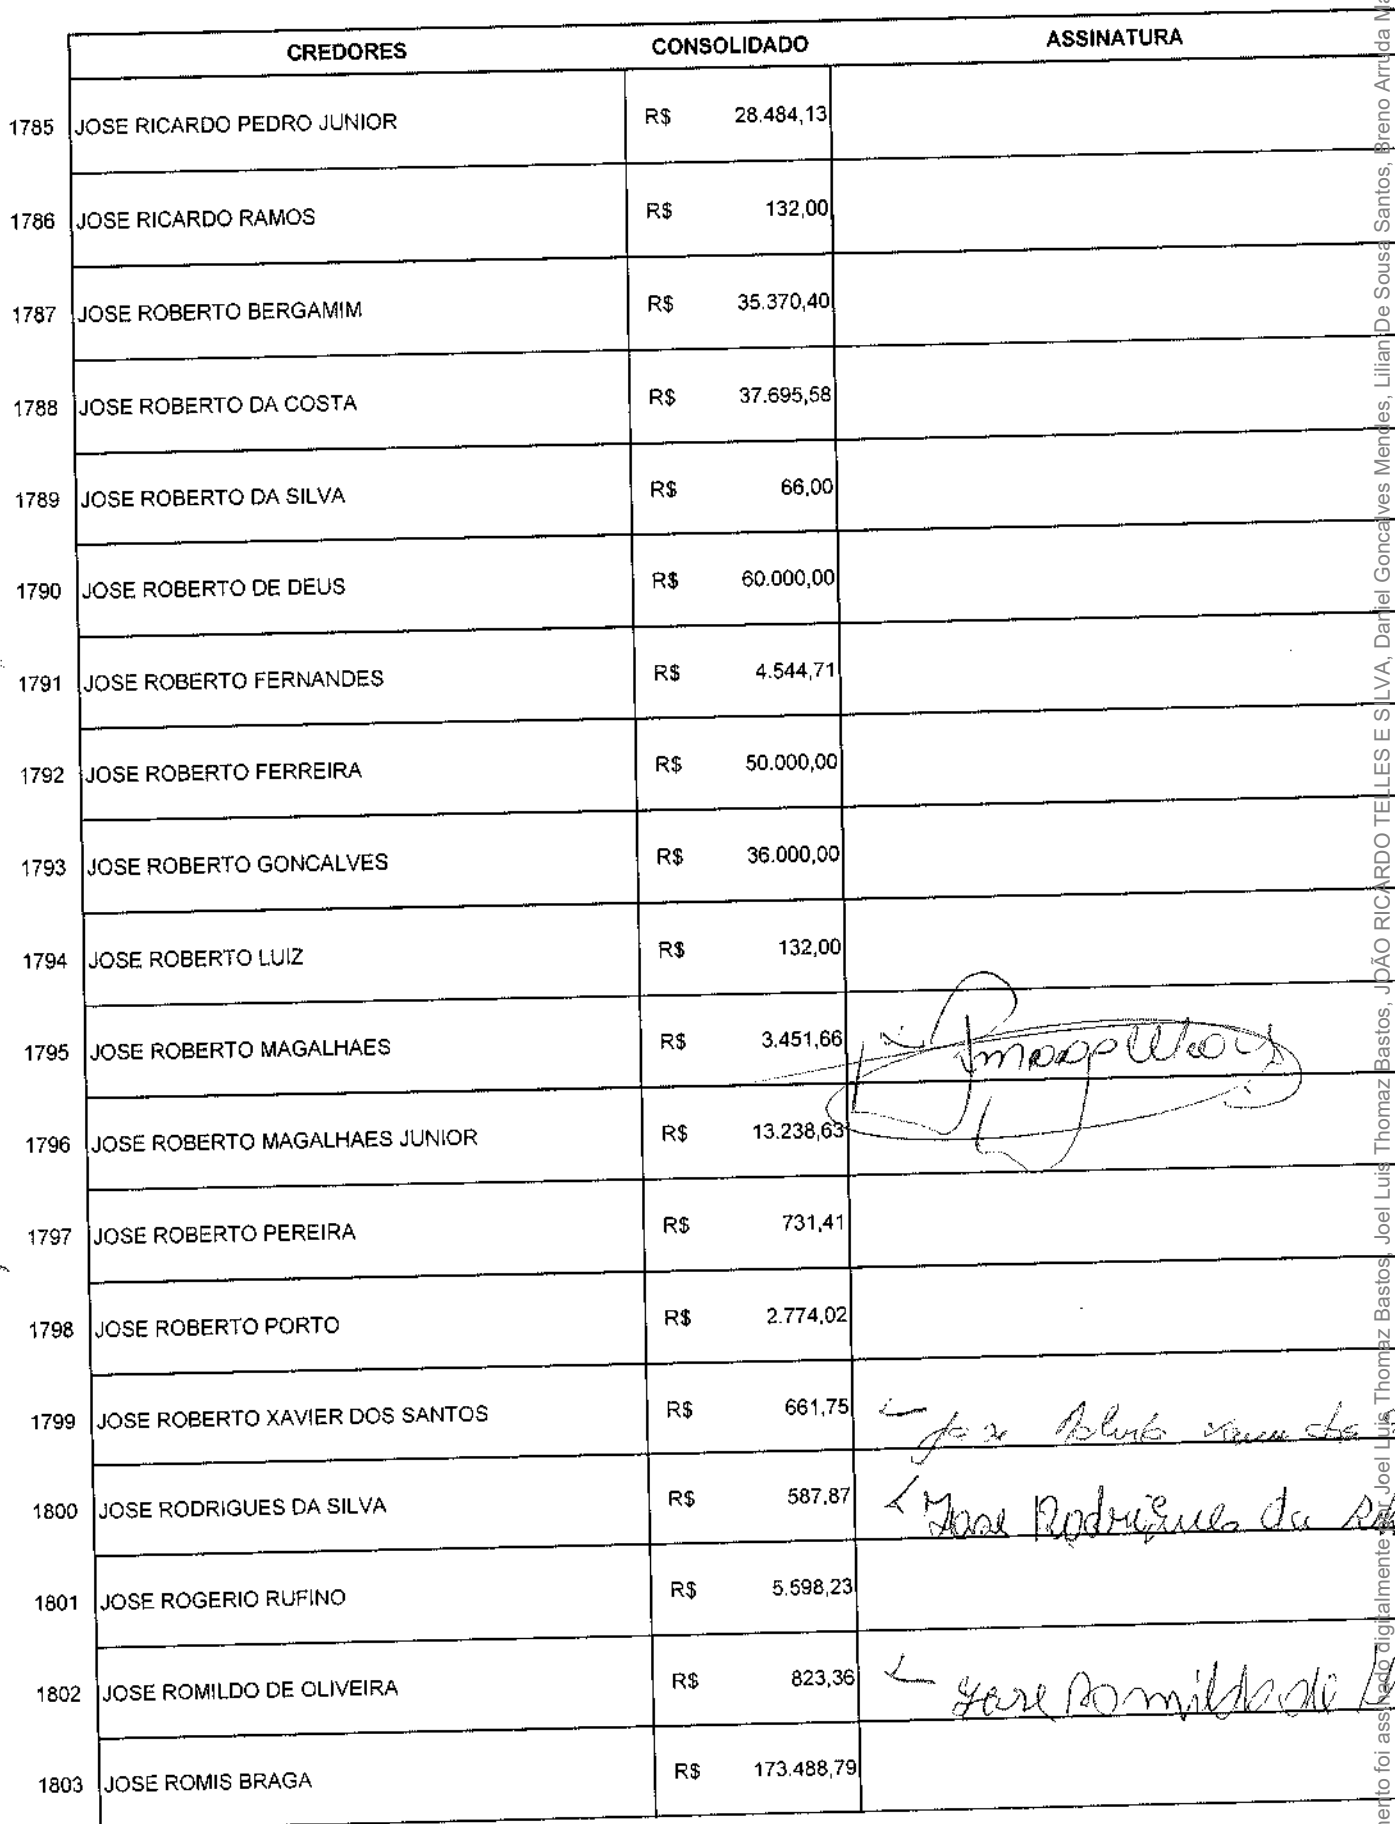 CREDORES CONSOLIDADO ASSINATURA
1785 JOSE RICARDO PEDRO JUNIOR R$ 28.484,13
1786 JOSE RICARDO RAMOS R$ 132,00
1787 JOSE ROBERTO BERGAMIM R$ 35.370,40
1788 JOSE ROBERTO DA COSTA R$ 37.695,58
1789 JOSE ROBERTO DA SILVA R$ 66,00
1790 JOSE ROBERTO DE DEUS R$ 60.000,00
1791 JOSE ROBERTO FERNANDES R$ 4.544,71
1792 JOSE ROBERTO FERREIRA R$ 50.000,00
1793 JOSE ROBERTO GONCALVES R$ 36.000,00
1794 JOSE ROBERTO LUIZ R$ 132,00
1795 JOSE ROBERTO MAGALHAES R$ 3.451,66
1796 JOSE ROBERTO MAGALHAES JUNIOR R$ 13.238,63
1797 JOSE ROBERTO PEREIRA R$ 731,41
1798 JOSE ROBERTO PORTO R$ 2.774,02
1799 JOSE ROBERTO XAVIER DOS SANTOS R$ 661,75 Jose Roberto
1800 JOSE RODRIGUES DA SILVA R$ 587,87 Jose Rodrigues da
1801 JOSE ROGERIO RUFINO R$ 5.598,23
1802 JOSE ROMILDO DE OLIVEIRA R$ 823,36 Jose Romildo de
1803 JOSE ROMIS BRAGA R$ 173.488,79
foi assinado digitalmente por Joel Luis Thomaz Bastos, Joel Luis Thomaz Bastos, JOÃO RICARDO TELLES E SILVA, Daniel Goncalves Mendes, Lilian De Sousa Santos, Breno Arruda